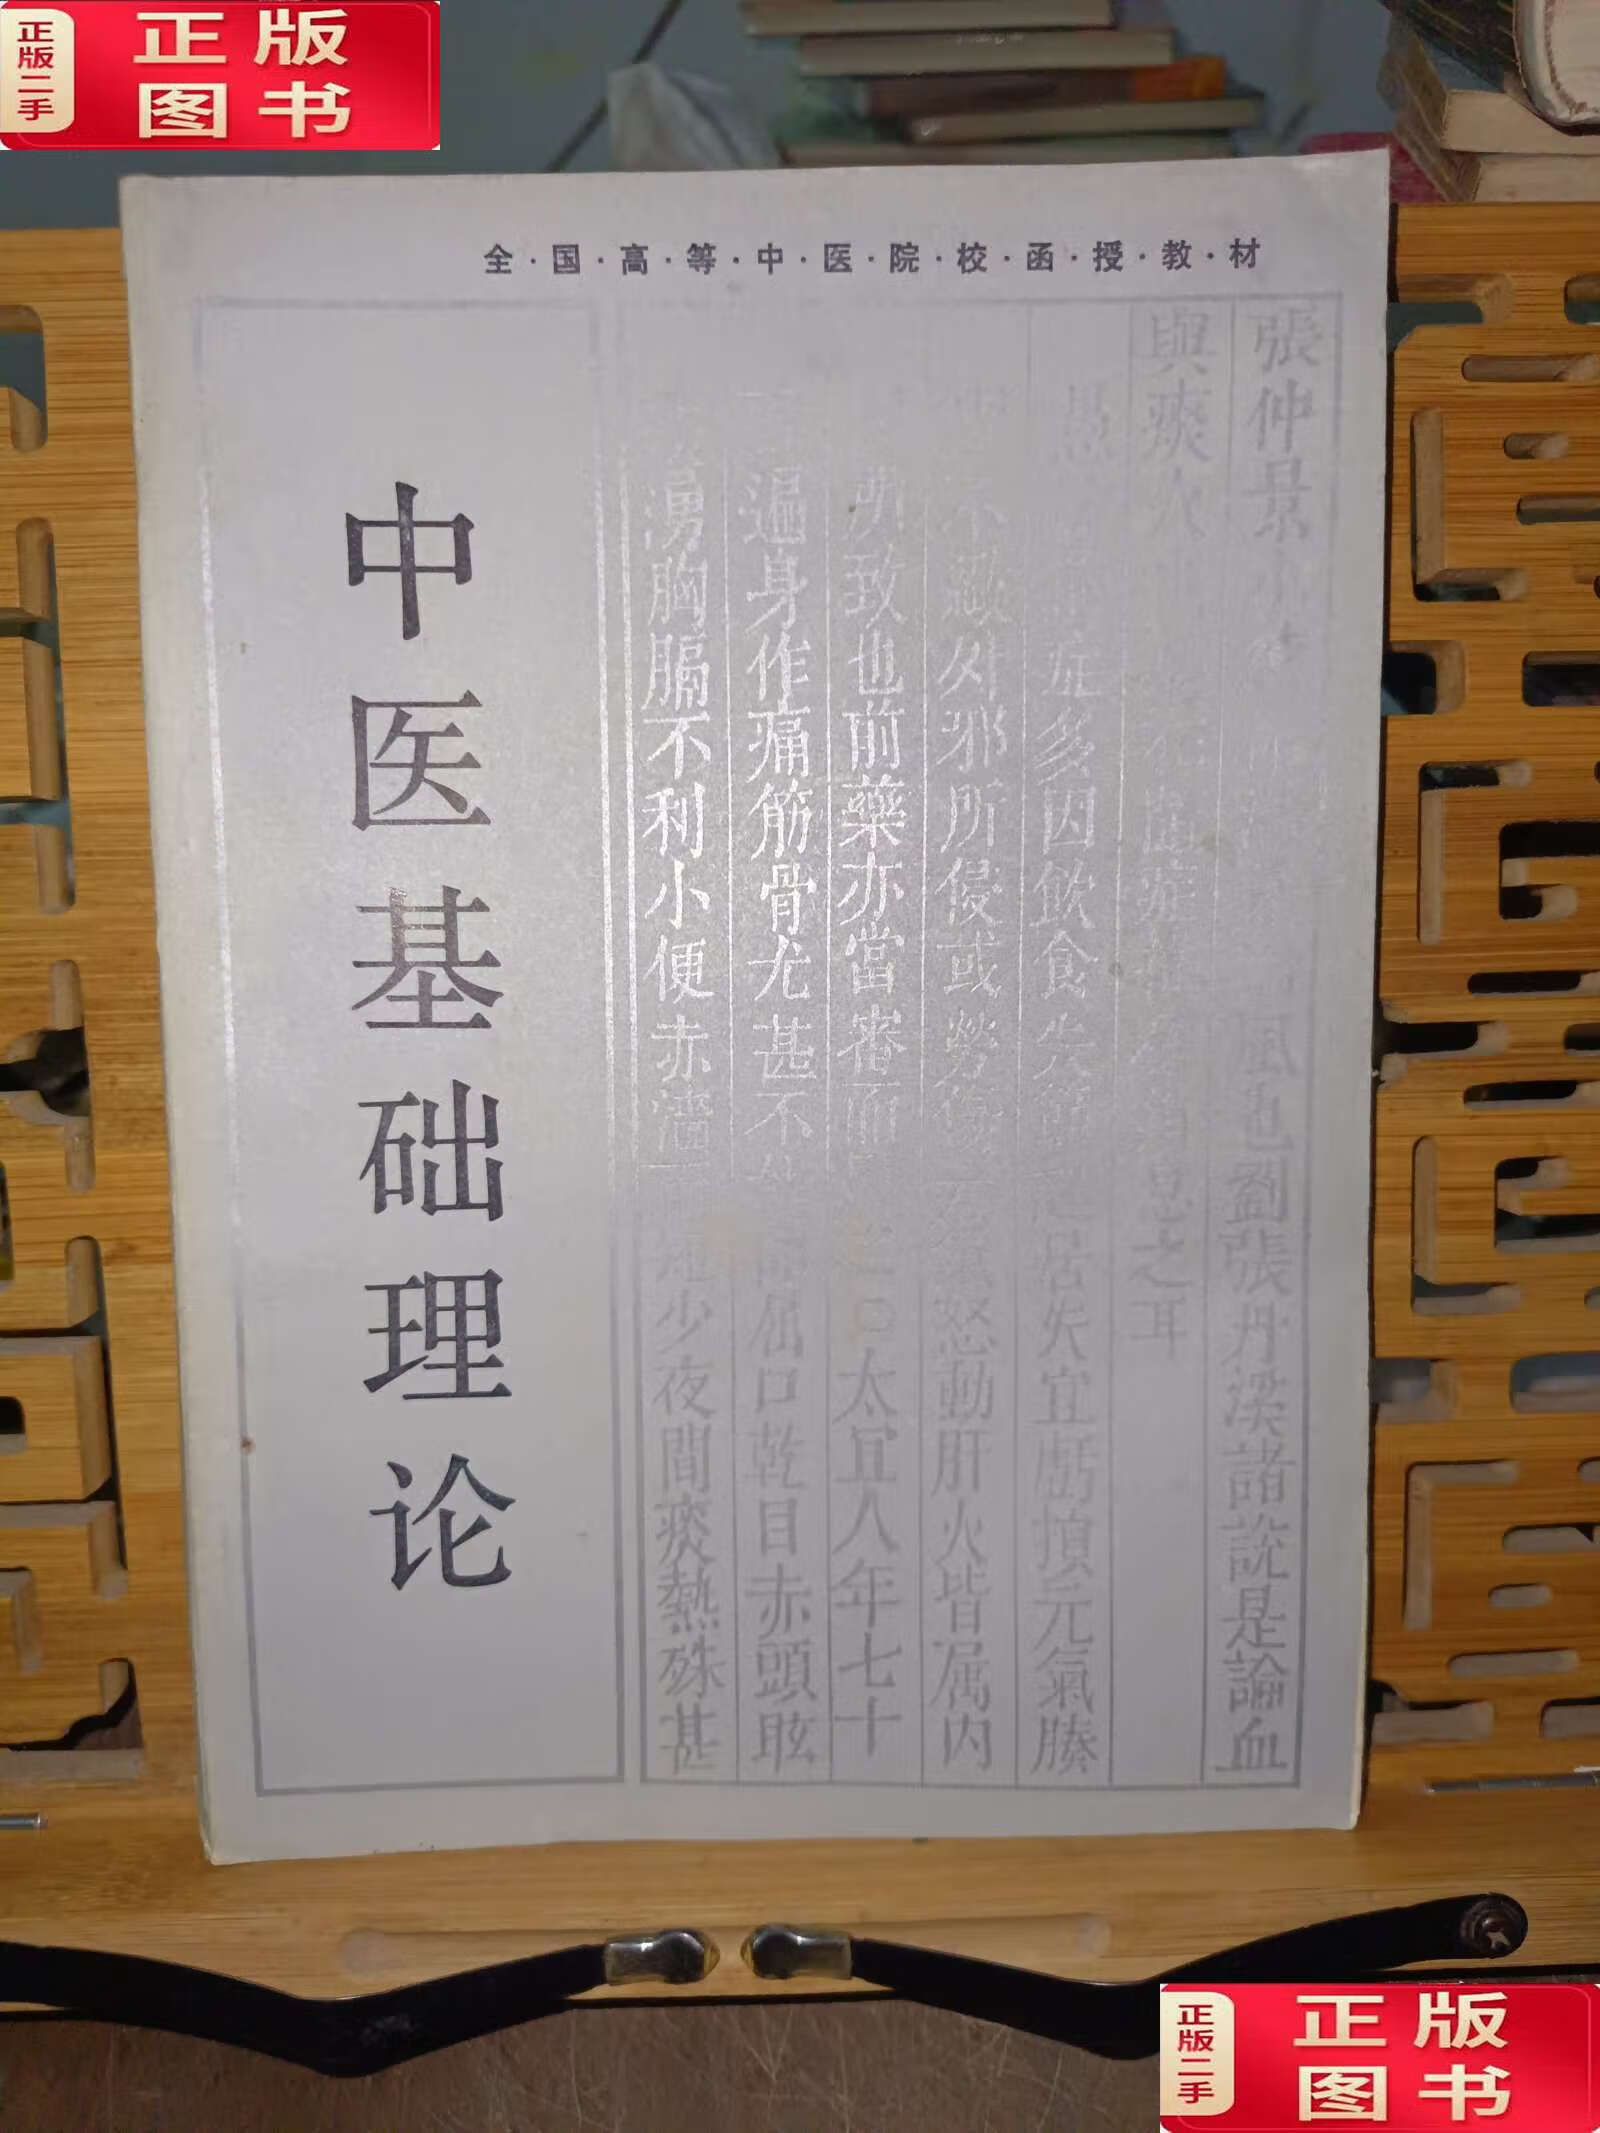 正版二手
正版
图书
全·国·高·等·中·医·院·校·函·授·教·材
中医基础理论
張仲景
風也劉張丹溪諸說是論血
與痰火
之耳
症多因飲食失節
居失宜虧損元氣腠
不勞外邪所侵或勞傷
怒動肝火皆属内
所致也前藥亦當審而
○太宜人年七十
遍身作痛筋骨尤甚不
屈口乾目赤頭眩
湧胸膈不利小便赤濇
少夜間痰熱殊甚
正版二手
正版
图书